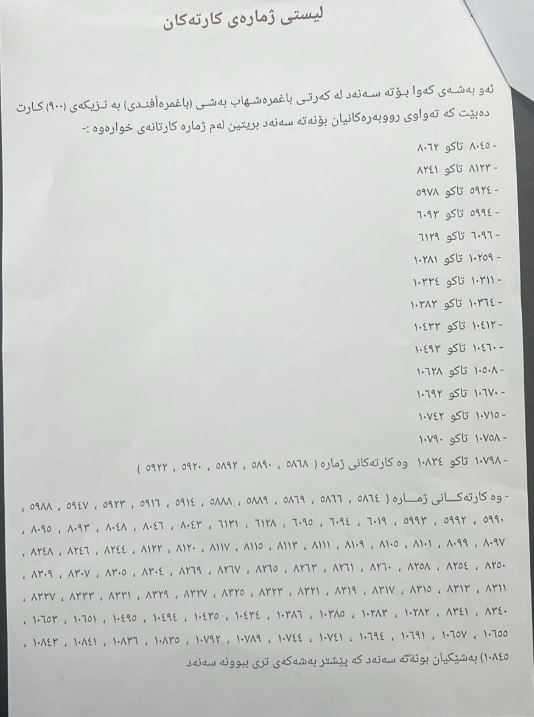 لیستی ژمارەی کارتەکان
ئەو بەشەی کەوا بۆتە سەنەد لە کەرتی باغمرەشهاب بەشی (باغمرەأفندی) بە نزیکەی (٩٠٠) کارت
دەبێت کە تەواوی رووبەرەکانیان بۆنەتە سەنەد بریتین لەم ژمارە کارتانەی خوارەوە :-
- ٨٠٤٥ تاکو ٨٠٦٢
- ٨١٢٣ تاکو ٨٢٤١
- ٥٩٢٤ تاکو ٥٩٧٨
- ٥٩٩٤ تاکو ٦٠٩٣
- ٦٠٩٦ تاکو ٦١٢٩
- ١٠٢٥٩ تاکو ١٠٢٨١
- ١٠٣١١ تاکو ١٠٣٣٤
- ١٠٣٦٤ تاکو ١٠٣٨٣
- ١٠٤١٢ تاکو ١٠٤٣٣
- ١٠٤٦٠ تاکو ١٠٤٩٣
- ١٠٥٠٨ تاکو ١٠٦٢٨
- ١٠٦٧٠ تاکو ١٠٦٩٢
- ١٠٧١٠ تاکو ١٠٧٤٢
- ١٠٧٥٨ تاکو ١٠٧٩٠
- ١٠٧٩٨ تاکو ١٠٨٣٤ وە کارتەکانی ژمارە ( ٥٨٦٨ ، ٥٨٩٠ ، ٥٨٩٢ ، ٥٩٢٠ ، ٥٩٢٢ )
- وە کارتەکانی ژمارە ( ٥٨٦٤ ، ٥٨٦٦ ، ٥٨٦٩ ، ٥٨٨٩ ، ٥٨٨٨ ، ٥٩١٤ ، ٥٩١٦ ، ٥٩٢٣ ، ٥٩٤٧ ، ٥٩٨٨ ،
٥٩٩٠ ، ٥٩٩٢ ، ٥٩٩٣ ، ٦٠١٩ ، ٦٠٩٤ ، ٦٠٩٥ ، ٦١٢٨ ، ٦١٣١ ، ٨٠٤٣ ، ٨٠٤٦ ، ٨٠٤٨ ، ٨٠٩٣ ، ٨٠٩٥ ،
٨٠٩٧ ، ٨٠٩٩ ، ٨١٠١ ، ٨١٠٥ ، ٨١٠٩ ، ٨١١١ ، ٨١١٣ ، ٨١١٥ ، ٨١١٧ ، ٨١٢٠ ، ٨١٢٢ ، ٨٢٤٤ ، ٨٢٤٦ ، ٨٢٤٨ ،
٨٢٥٠ ، ٨٢٥٤ ، ٨٢٥٨ ، ٨٢٦٠ ، ٨٢٦١ ، ٨٢٦٣ ، ٨٢٦٥ ، ٨٢٦٧ ، ٨٢٦٩ ، ٨٣٠٤ ، ٨٣٠٥ ، ٨٣٠٧ ، ٨٣٠٩ ،
٨٣١١ ، ٨٣١٣ ، ٨٣١٥ ، ٨٣١٧ ، ٨٣١٩ ، ٨٣٢١ ، ٨٣٢٣ ، ٨٣٢٥ ، ٨٣٢٧ ، ٨٣٢٩ ، ٨٣٣١ ، ٨٣٣٣ ، ٨٣٣٧ ،
٨٣٤٠ ، ٨٣٤١ ، ١٠٢٨٢ ، ١٠٢٨٣ ، ١٠٣٨٥ ، ١٠٣٨٦ ، ١٠٤٣٤ ، ١٠٤٣٥ ، ١٠٤٩٤ ، ١٠٤٩٥ ، ١٠٦٥١ ، ١٠٦٥٣ ،
١٠٦٥٥ ، ١٠٦٥٧ ، ١٠٦٩١ ، ١٠٦٩٤ ، ١٠٧٤١ ، ١٠٧٤٤ ، ١٠٧٨٩ ، ١٠٧٩٢ ، ١٠٨٣٥ ، ١٠٨٣٦ ، ١٠٨٤١ ، ١٠٨٤٣ ،
١٠٨٤٥) بەشێکیان بونەتە سەنەد کە پێشتر بەشەکەی تری ببوونە سەنەد